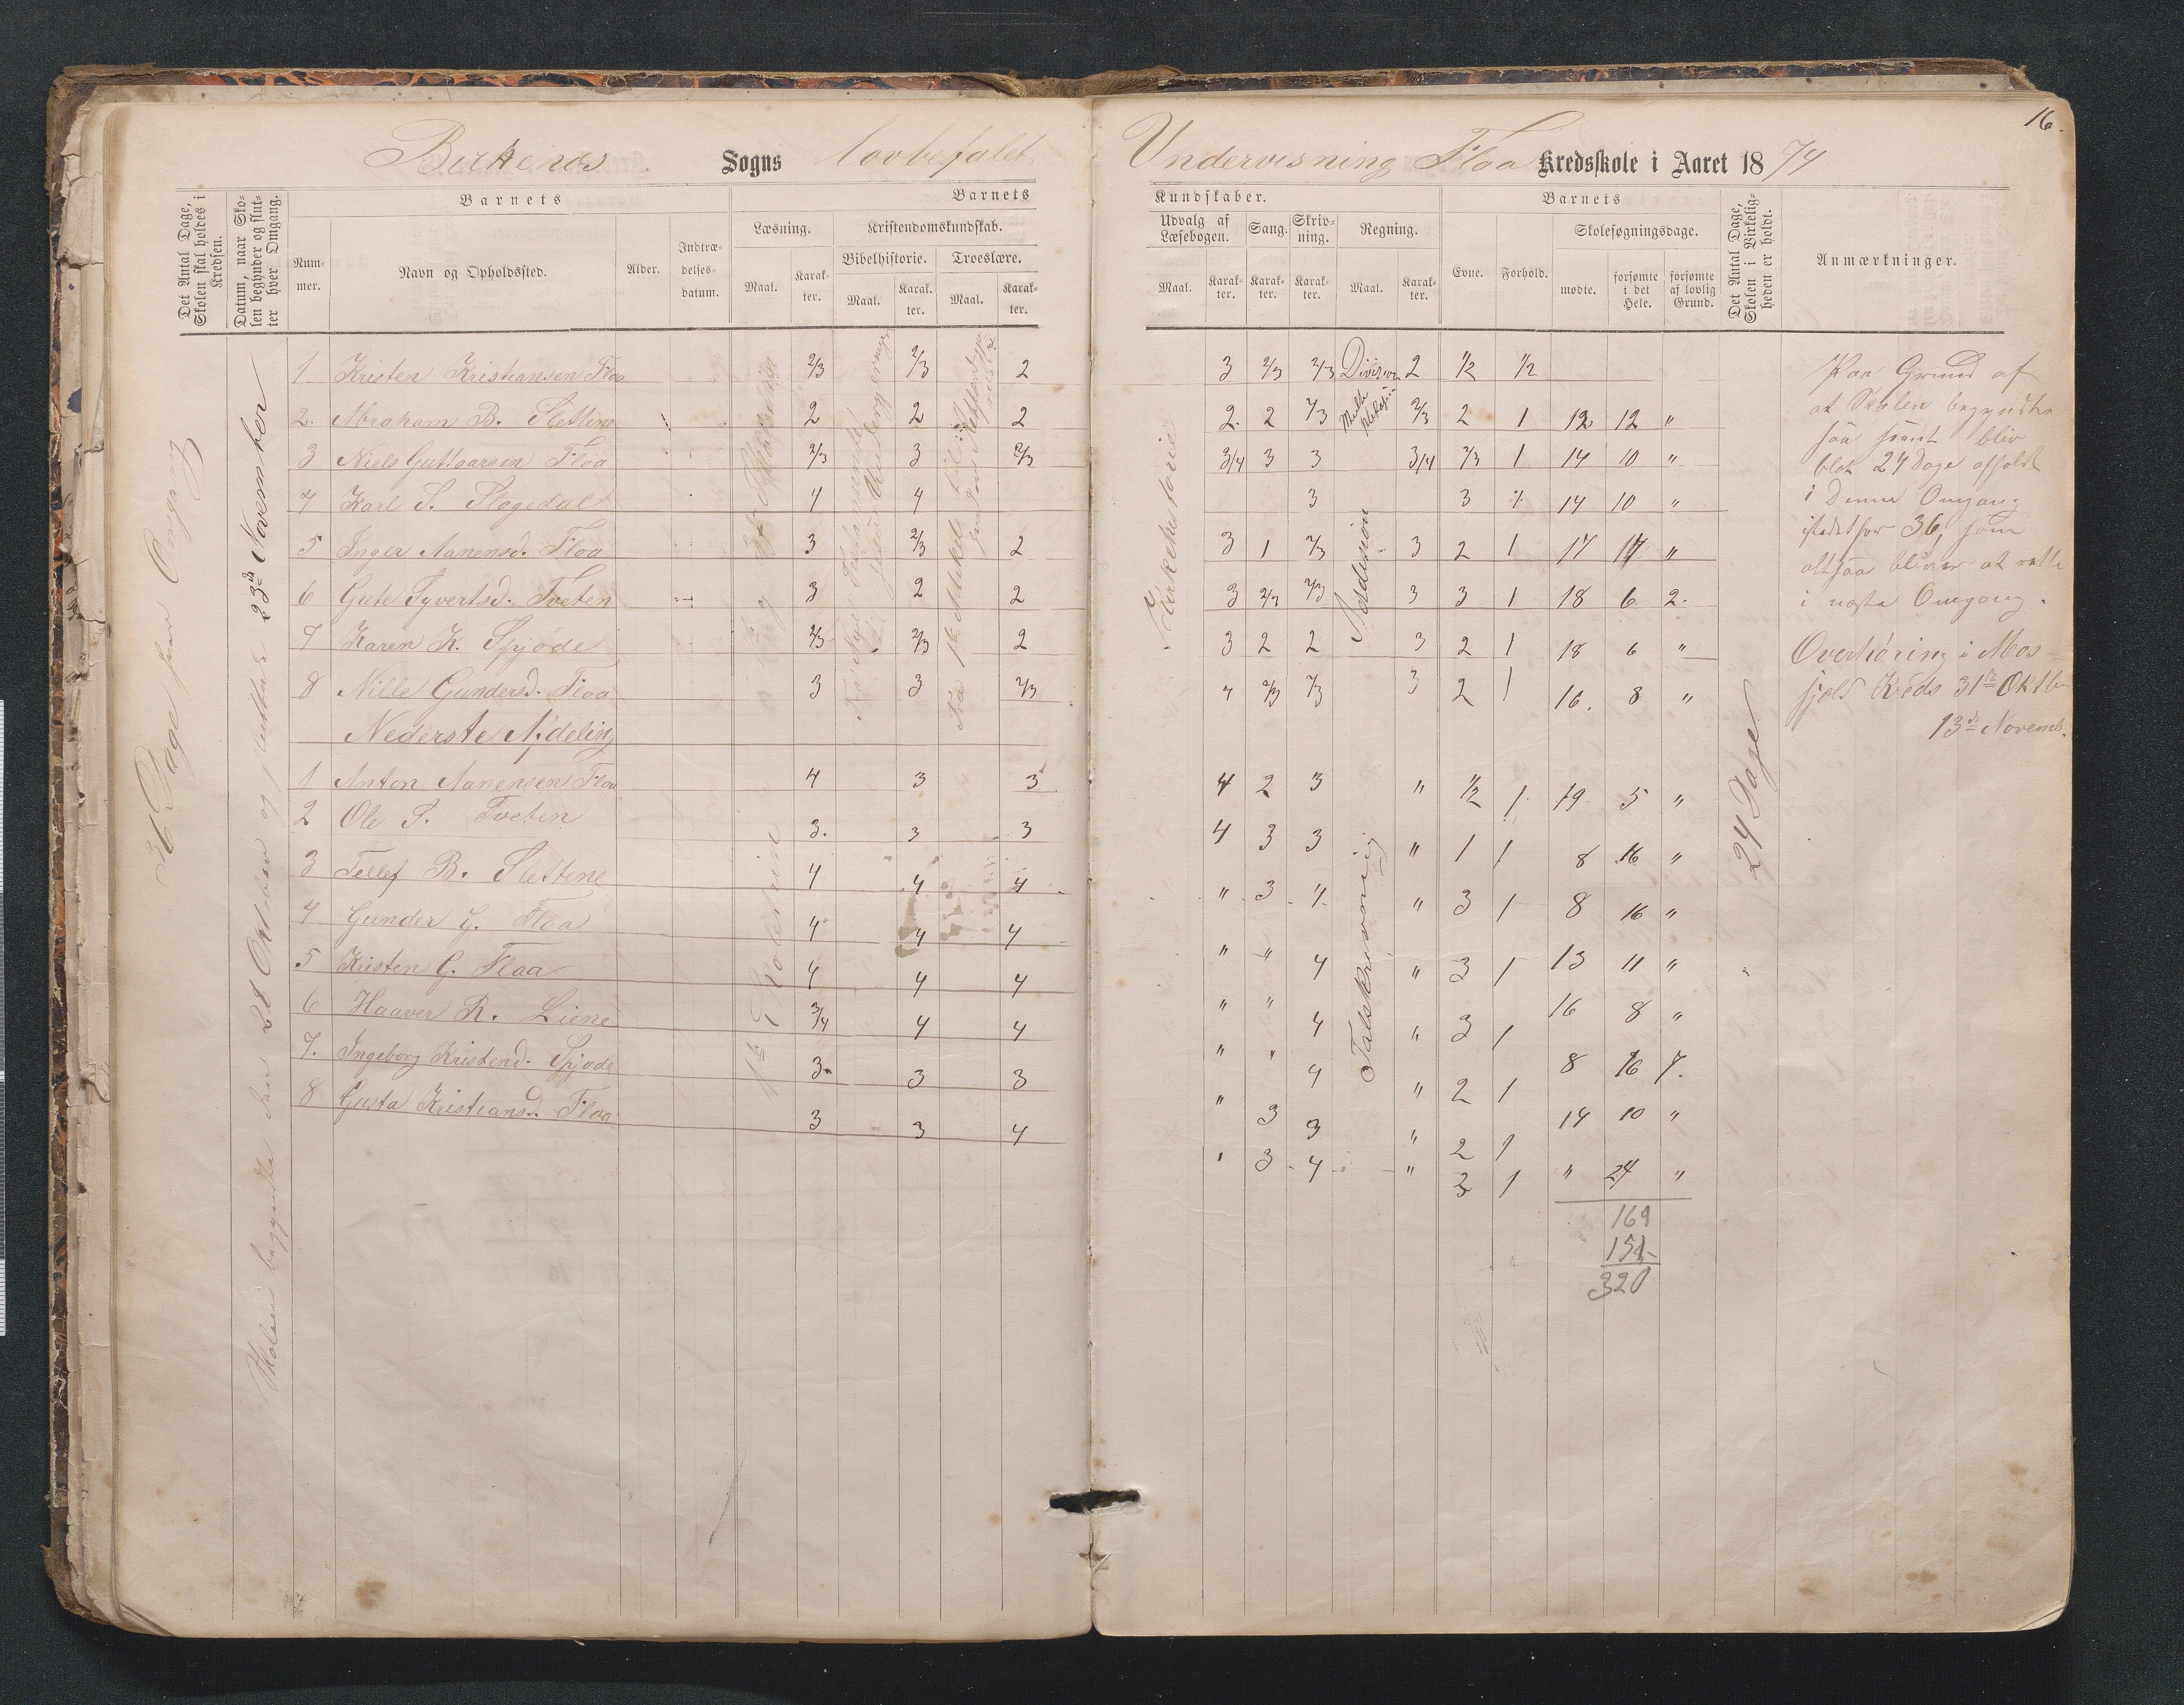 16.
Birkenes Sogns lovbefalet Undervisning Floa Kredsskole i Aaret 1874
Det Antal Dage, Skolen skal holdes i Kredsen.
Datum, naar Skolen begynder og slutter hver Omgang.
Barnets
Nummer.
Navn og Opholdssted.
Alder.
Indtrædelsesdatum.
Barnets
Læsning.
Maal.
Karakter.
Kristendomskundskab.
Bibelhistorie.
Maal.
Karakter.
Troeslære.
Maal.
Karakter.
Kundskaber.
Udvalg af Læsebogen.
Maal.
Karakter.
Sang.
Karakter.
Skrivning.
Karakter.
Regning.
Maal.
Karakter.
Barnets
Evne.
Forhold.
Skolesøgningsdage.
mødte.
forsømte i det Hele.
forsømte af lovlig Grund.
Det Antal Dage, Skolen i Virkeligheden er holdt.
Anmærkninger.
36 Dage hver Omgang
Skolen begyndte den 28 Oktober og sluttede 23de November
1 Kristen Kristiansen Floa 2/3 2/3 2 3 2/3 2/3 Division 2 1/2 1/2
2. Abraham B. Slettene 2 2 2 2. 2 2/3 Multiplikasj. 2/3 2 1 12 12 "
3 Niels Guttoarsen Floa 2/3 3 2/3 3/4 3 3 3/4 2/3 1 14 10 "
4 Karl S. Flagedal 4 4 3 3 1/2 14 10 "
5 Inger Aanensd. Floa 3 2/3 2 3 1 2/3 3 2 1 17 17 "
6 Grete Syvertsd. Tveten 3 2 2 3 2/3 2/3 3 3 1 18 6 2.
7 Karen K. Spjøde 2/3 2/3 2 3 2 2 3 2 1 18 6 "
8 Nille Gundersd. Floa 3 3 2/3 4 2/3 2/3 3 2 1 16. 8 "
Nederste Afdeling
1 Anton Aanensen Floa 4 3 3 4 2 3 " 1/2 1 19 5 "
2 Ole S. Tveten 3. 3 3 4 3 3 " 1 1 8 16 "
3 Tellef B. Slettene 4 4 4 " 3 4 " 3 1 8 16 "
4 Gunder G. Floa 4 4 4 " " 4 " 3 1 13 11 "
5 Kristen G. Floa 4 4 4 " " 4 " 3 1 16 8 "
6 Haaver R. Liene 3/4 4 4 " " 4 " 2 1 8 16 7.
7. Ingeborg Kristend. Spjøde 3 3 3 " 3 3 " 2 1 14 10 "
8 Gusta Kristiansd. Floa 3 3 4 " 3 4 " 3 1 " 24 "
169
151
320
Kirkehistorie
Addision
Talskrivning
24 Dage
Paa Grund af
at Skolen begyndte
saa seent blev
blot 24 Dage afholdt
i Denne Omgang
istedetfor 36, som
altsaa bliver at rette
i næste Omgang.
Overhøring i Mosfjeld Kreds 31te Oktb
13de Novemb.